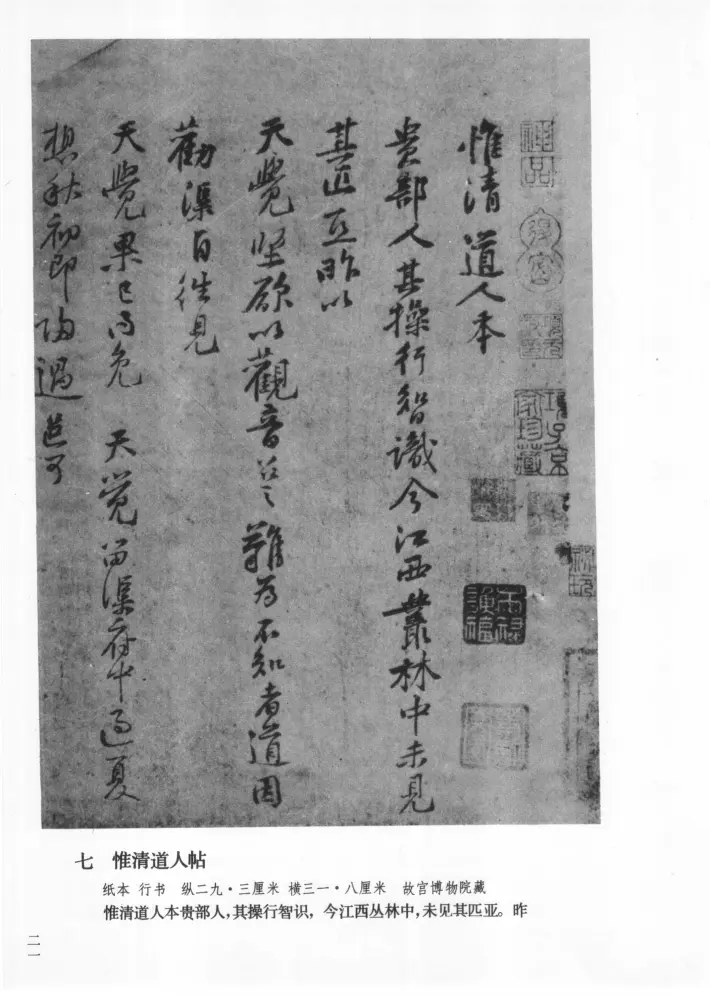 神品
項子京家珍藏
惟清道人本
貴部人其操行智識今江西叢林中未見
其匹亞昨以
天覺堅欲以觀音召之難為不知者道因
勸渠自往見
天覺果已得免 天覺留渠府中過夏
想秋初即歸過邑可
七 惟清道人帖
纸本 行书 纵二九·三厘米 横三一·八厘米 故宫博物院藏
惟清道人本贵部人,其操行智识,今江西丛林中,未见其匹亚。昨
二一